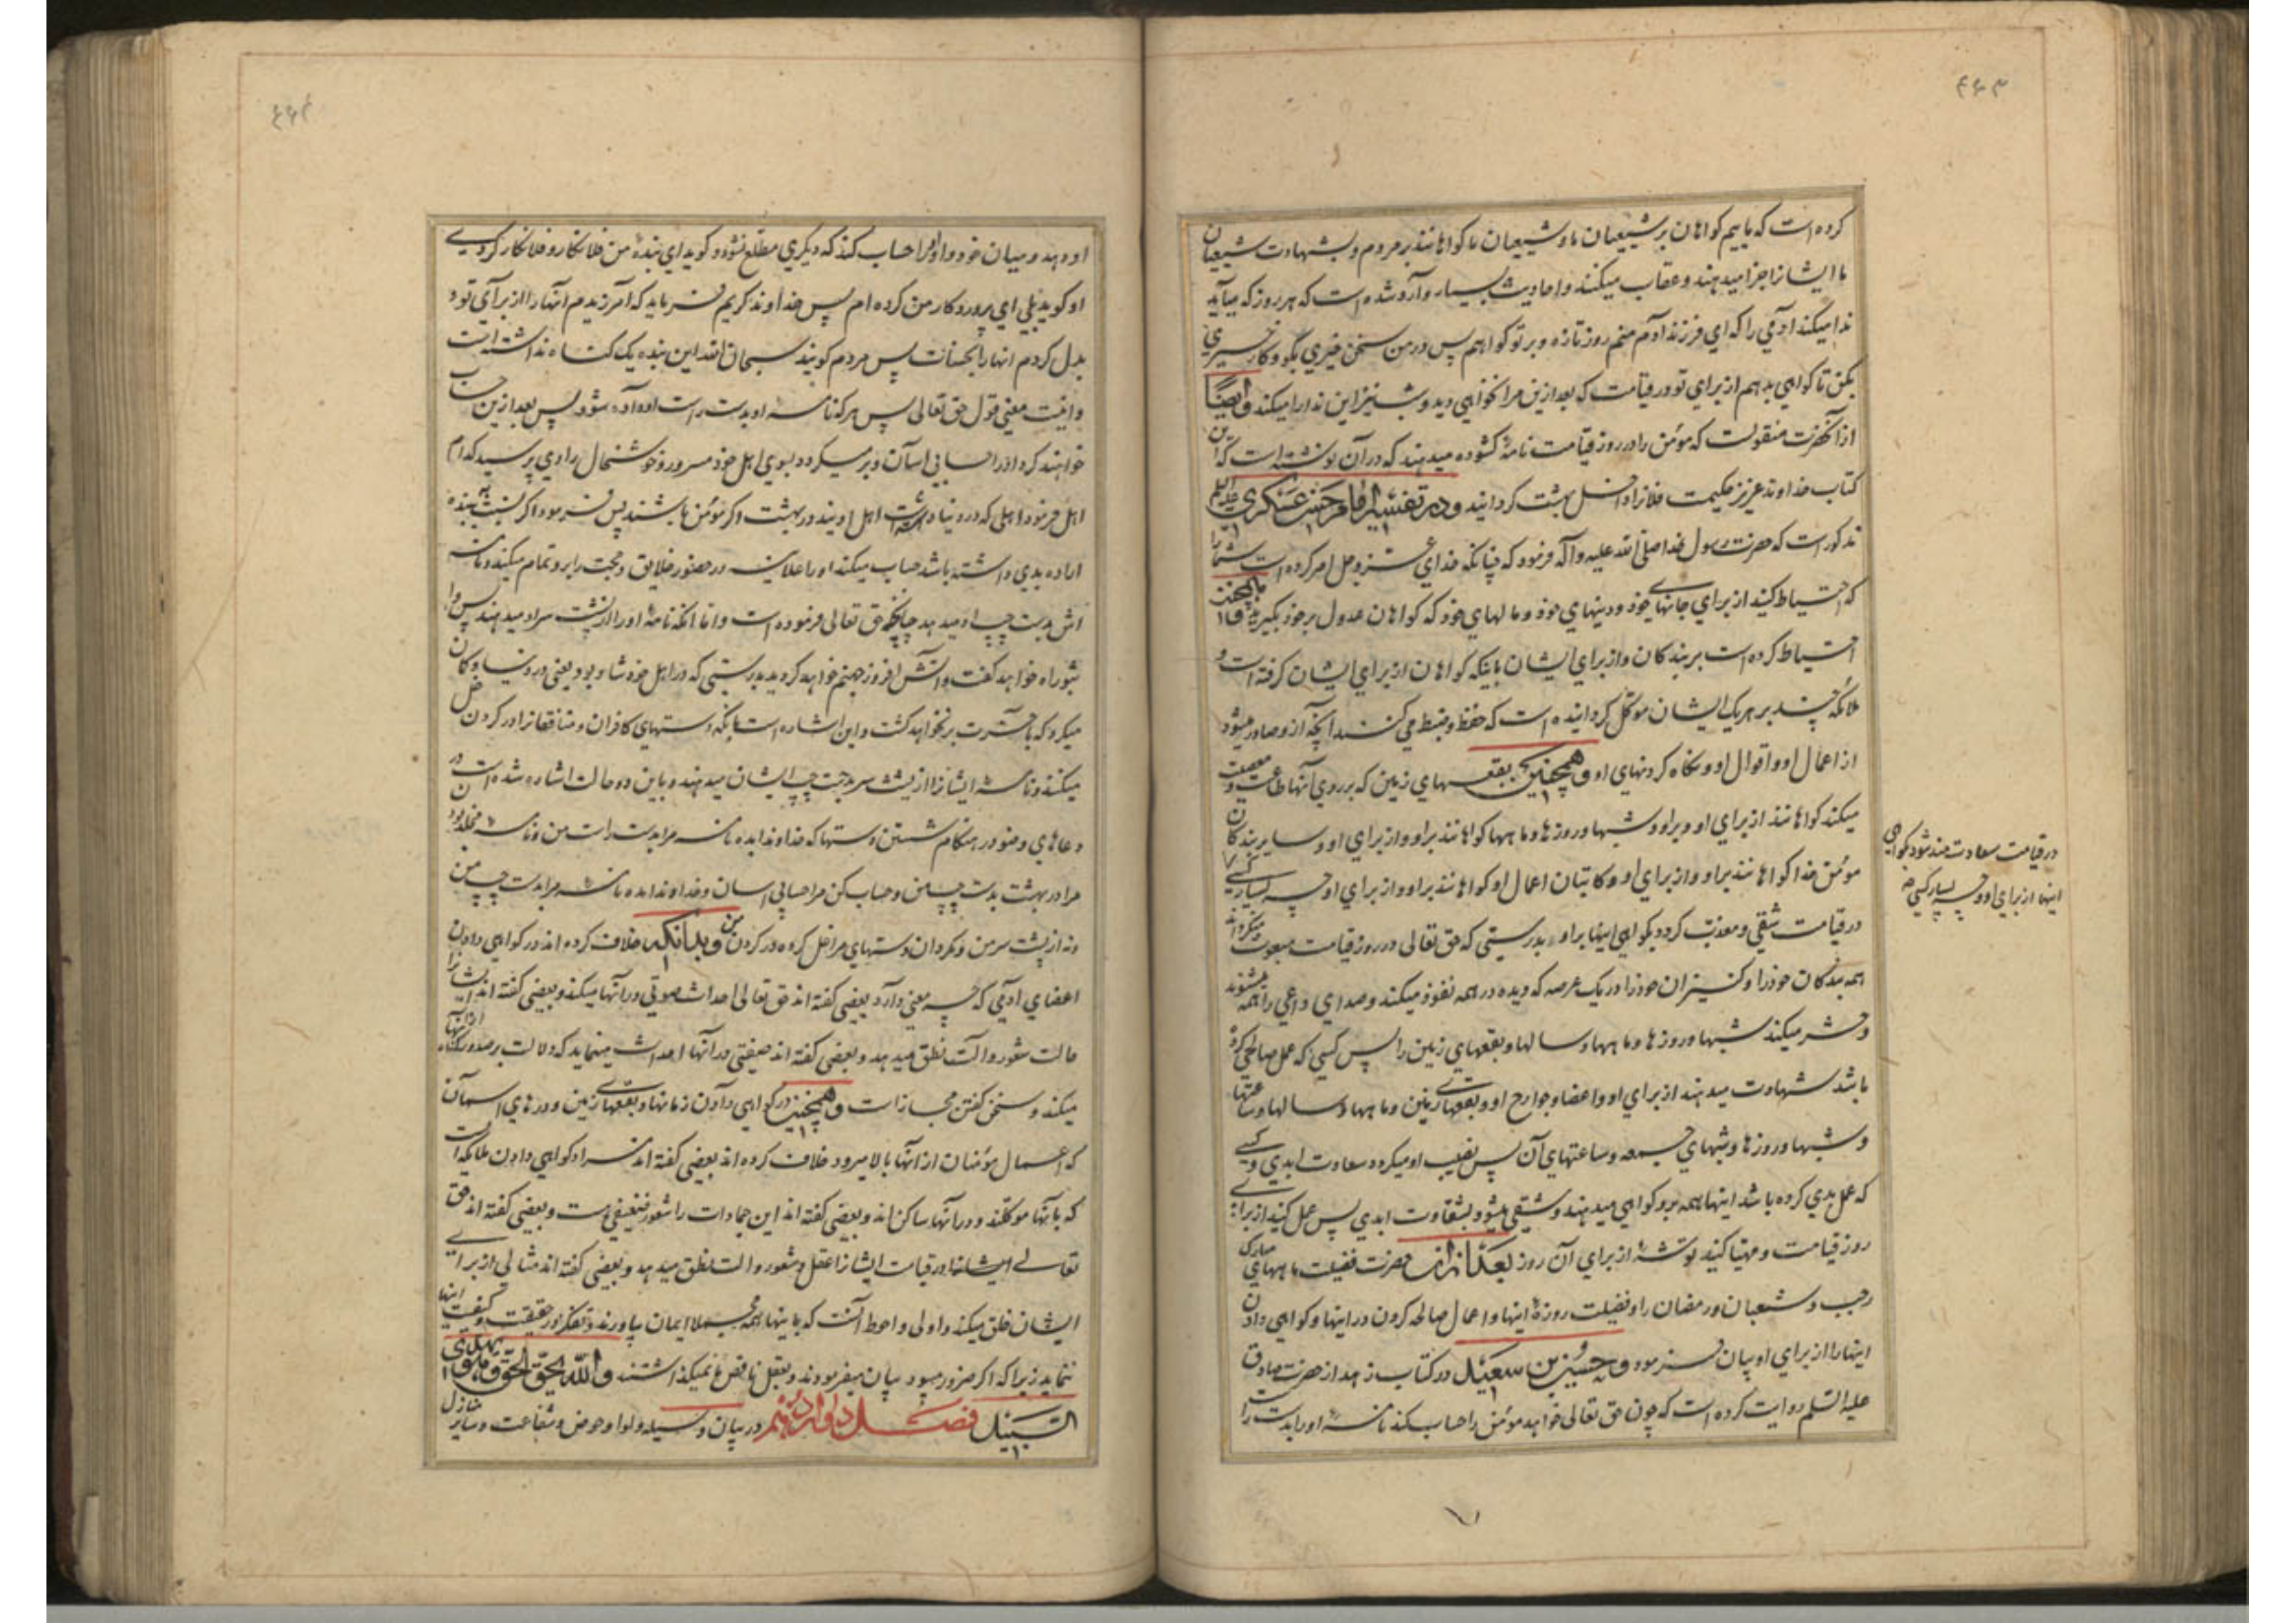 ۴۴۳
کرده است که ماییم کواهان بر شیعیان ما و شیعیان ما کواهانند بر مردم و بشهادت شیعیان
ما ایشانرا جزا میدهند و عقاب میکنند و احادیث بسیار وارد شده است که هر روز که میاید
ندا میکند آدمی را که ای فرزند آدم منم روز تازه و بر تو کواهم پس در من سخن خیری بکو و کار خیری
بکن تا کواهی بدهم از برای تو در قیامت که بعد ازین مرا نخواهی دید و شب نیز این ندا را میکند و ایضًا
از آنحضرت منقولست که مؤمن را در روز قیامت نامهٔ کشوده میدهند که در آن نوشته است که این
کتاب خداوند عزیز حکیمست فلانرا داخل بهشت کردانید و در تفسیر امام حسن عسکری علیه السلم
مذکور است که حضرت رسول خدا صلی الله علیه و آله فرمود که چنانکه خدای عز و جل امر کرده است شما را
که احتیاط کنید از برای جانهای خود و دینهای خود و مالهای خود که کواهان عدول بر خود بکیرید همچنین
احتیاط کرده است بر بندکان و از برای ایشان باینکه کواهان از برای ایشان کرفته است و
ملائکهٔ چند بر هر یک ایشان موکل کردانیده است که حفظ و ضبط می کنند آنچه از و صادر میشود
از اعمال او و اقوال او و نکاه کردنهای او و همچنین بقعهای زمین که بر روی آنها طاعت و معصیت
میکند کواهانند از برای او و بر او و شبها و روزها و ماهها کواهانند بر او و از برای او و سایر بندکان
مؤمن خدا کواهانند بر او و از برای او و کاتبان اعمال او کواهانند بر او و از برای او چه بسیار کسی
در قیامت سعادت مند شود بکواهی
اینها از برای او و چه بسیار کسی که
در قیامت شقی و معذب کردد بکواهی اینها بر او بدرستی که حق تعالی در روز قیامت مبعوث میکرداند
همه بندکان خود را و کنیزان خود را در یک عرصه که دیده در همه نفوذ میکند و صدای داعی را همه میشنوند
و حشر میکند شبها و روزها و ماهها و سالها و بقعهای زمین را پس کسی که عمل صالحی کرده
باشد شهادت میدهند از برای او و اعضا و جوارح او و بقعهای زمین و ماهها و سالها و ساعتها
و شبها و روزها و شبهای جمعه و ساعتهای آن پس نصیب او میکردد سعادت ابدی و کسی
که عمل بدی کرده باشد اینها همه بر و کواهی میدهند و شقی میشود بشقاوت ابدی پس عمل کنید از برای
روز قیامت و مهیا کنید توشهٔ از برای آن روز بعد از آن حضرت فضیلت ماههای مبارک
رجب و شعبان و رمضان را و فضیلت روزهٔ اینها و اعمال صالحه کردن در اینها و کواهی دادن
اینها را از برای او بیان فرمود و حسین بن سعید در کتاب زهد از حضرت صادق
علیه السلم روایت کرده است که چون حق تعالی خواهد مؤمن را حساب کند نامهٔ او را بدست راست
۴۴۴
او دهد و میان خود و او او را حساب کند که دیکری مطلع نشود و کوید ای بندهٔ من فلان کار و فلان کار کردی
او کوید بلی ای پروردکار من کرده ام پس خداوند کریم فرماید که آمرزیدم آنها را از برای تو و
بدل کردم آنها را بحسنات پس مردم کویند سبحان الله این بنده یک کناه نداشته است
و اینست معنی قول حق تعالی پس هر که نامهٔ او بدست راست او داده شود پس بعد ازین حساب
خواهند کرد او را حسابی آسان و بر میکردد بسوی اهل خود مسرور و خوشحال راوی پرسید که کدام
اهل فرمود اهلی که در دنیا داشته است اهل اویند در بهشت اکر مؤمن باشند پس فرمود اکر نسبت به بنده
اراده بدی داشته باشد حساب میکند او را علانیه در حضور خلایق و حجت را بر او تمام میکند و نامه
اش بدست چپ او میدهد چنانچه حق تعالی فرموده است و اما آنکه نامهٔ او را از پشت سر او میدهند پس وا
ثبوراه خواهد کفت و آتش افروز جهنم خواهد کردید بدرستی که در اهل خود شاد بود یعنی در دنیا و کمان
میکرد که بآخرت بر نخواهد کشت و این اشاره است بآنکه دستهای کافران و منافقانرا در کردن غل
میکنند و نامهٔ ایشانرا از پشت سر بدست چپ ایشان میدهند و باین دو حالت اشاره شده است در
دعاهای وضو در هنکام شستن دستها که خداوندا بده نامهٔ مرا بدست راست من و نامهٔ مخلد بودن
مرا در بهشت بدست چپ من و حساب کن مرا حسابی آسان و خداوندا مده نامهٔ مرا بدست چپ من
و نه از پشت سر من و مکردان دستهای مرا غل کرده در کردن من و بدانکه خلاف کرده اند در کواهی دادن
اعضای آدمی که چه معنی دارد بعضی کفته اند حق تعالی احداث صوتی در آنها میکند و بعضی کفته اند ایشانرا
حالت شعور و آلت نطق میدهد و بعضی کفته اند صفتی در آنها احداث مینماید که دلالت بر صدور کناه از آنها
میکند و سخن کفتن مجاز است و همچنین در کواهی دادن زمانها و بقعهای زمین و درهای آسمان
که اعمال مؤمنان از آنها بالا میرود خلاف کرده اند بعضی کفته اند مراد کواهی دادن ملایکه است
که بآنها موکلند و در آنها ساکن اند و بعضی کفته اند این جمادات را شعور ضعیفی هست و بعضی کفته اند حق
تعالی ایشانرا در قیامت ایشانرا عقل و شعور و آلت نطق میدهد و بعضی کفته اند مثالی از برای
ایشان خلق میکند و اولی و احوط آنست که باینها همه مجملا ایمان بیاورند و تفکر در حقیقت و کیفیت اینها
ننمایند زیرا که اکر ضرور میبود بیان میفرمودند و بعقل ناقص ما نمیکذاشتند و الله یحق الحق و هو یهدی
السبیل فصل دوازدهم در بیان وسیله و لوا و حوض و شفاعت و سایر منازل